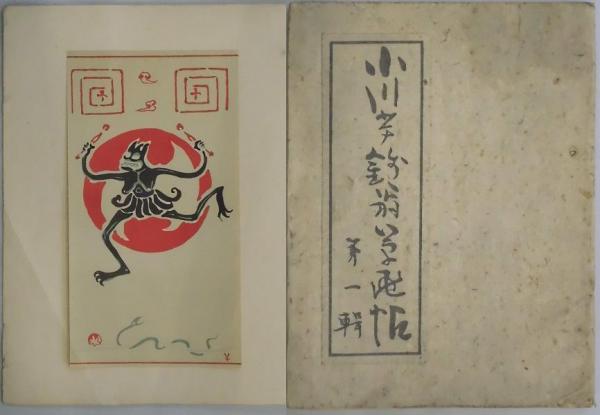 小川芋銭翁草画帖
第一輯